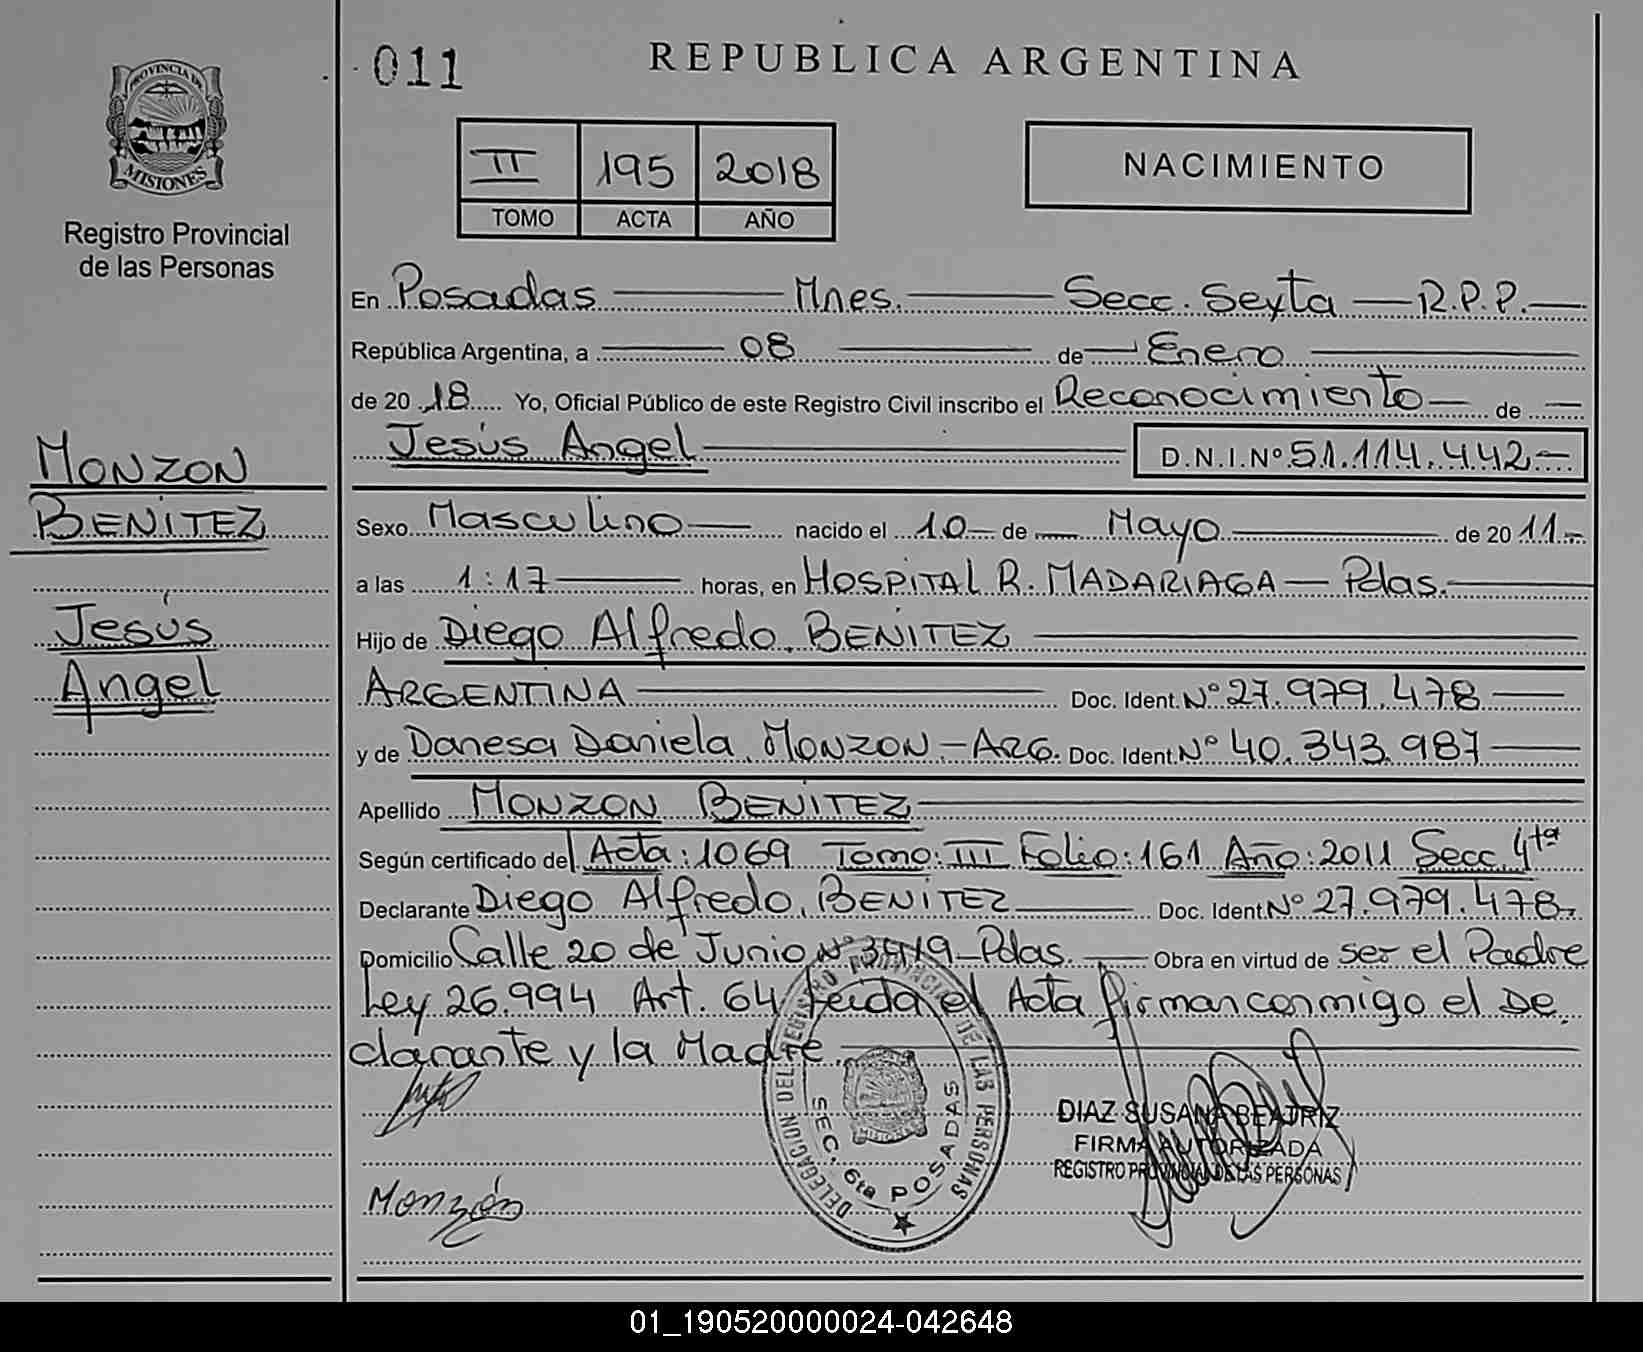 011
REPUBLICA ARGENTINA
PROVINCIA DE
MISIONES
Registro Provincial
de las Personas
II 195 2018
TOMO ACTA AÑO
NACIMIENTO
MONZON
BENITEZ
Jesús
Angel
En Posadas Mnes. Secc. Sexta R.P.P.
República Argentina, a 08 de Enero
de 20 18 Yo, Oficial Público de este Registro Civil inscribo el Reconocimiento de
Jesús Angel D.N.I.Nº 51.114.442
Sexo Masculino nacido el 10 de Mayo de 20 11
a las 1:17 horas, en HOSPITAL R. MADARIAGA Pdas.
Hijo de Diego Alfredo. BENITEZ
ARGENTINA Doc. Ident. Nº 27.979.478
y de Danesa Daniela. MONZON - ARG. Doc. Ident. Nº 40.343.987
Apellido MONZON BENITEZ
Según certificado del Acta: 1069 Tomo: III Folio: 161 Año: 2011 Secc. 4ta
Declarante Diego Alfredo. BENITEZ Doc. Ident Nº 27.979.478.
Domicilio Calle 20 de Junio Nº 3419 - Pdas. Obra en virtud de ser el Padre
Ley 26.994 Art. 64 leida el Acta firman conmigo el De
clarante y la Madre.
DELEGACION DEL REGISTRO PROVINCIAL DE LAS PERSONAS
SEC. 6ta POSADAS
MISIONES
DIAZ SUSANA BEATRIZ
FIRMA AUTORIZADA
REGISTRO PROVINCIAL DE LAS PERSONAS
Monzón
01_190520000024-042648